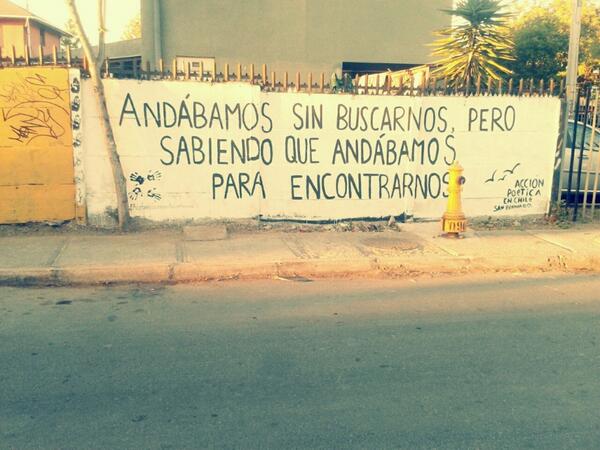 ANDÁBAMOS SIN BUSCARNOS, PERO
SABIENDO QUE ANDÁBAMOS
PARA ENCONTRARNOS
ACCIÓN
POÉTICA
EN CHILE
SAN BERNARDO